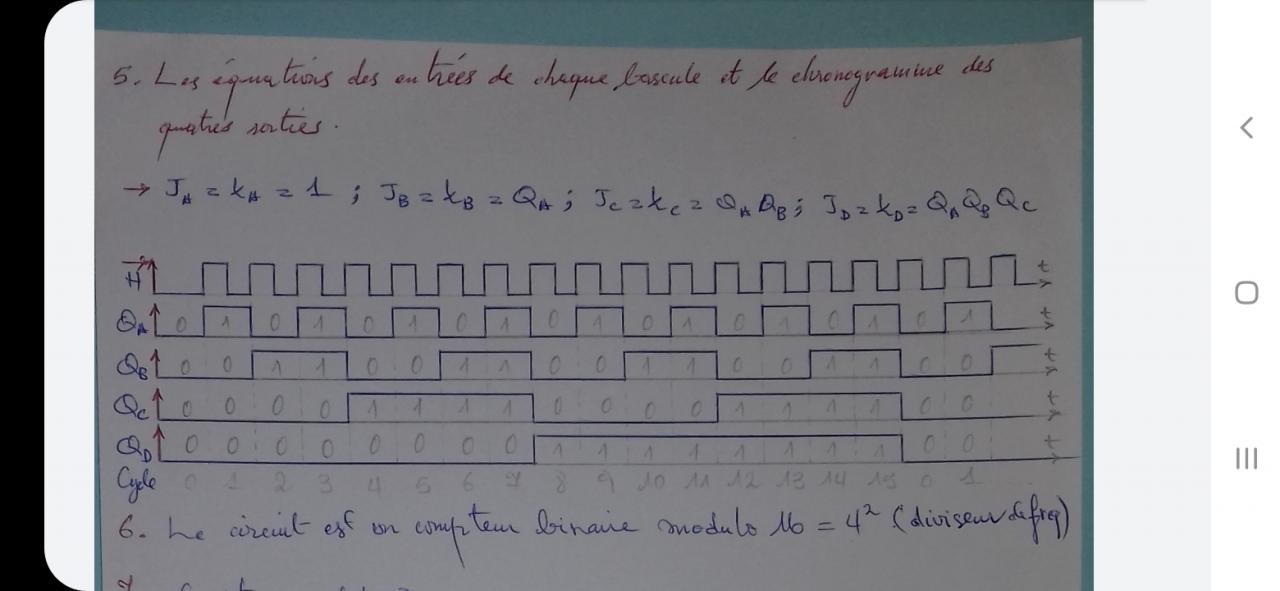 5. Les équations des entrées de chaque bascule et le chronogramme des
quatres sorties.
→ J_A = K_A = 1 ; J_B = K_B = Q_A ; J_C = K_C = Q_A Q_B ; J_D = K_D = Q_A Q_B Q_C
H t
Q_A 0 1 0 1 0 1 0 1 0 1 0 1 0 1 0 1 0 1 t
Q_B 0 0 1 1 0 0 1 1 0 0 1 1 0 0 1 1 0 0 t
Q_C 0 0 0 0 1 1 1 1 0 0 0 0 1 1 1 1 0 0 t
Q_D 0 0 0 0 0 0 0 0 1 1 1 1 1 1 1 1 0 0 t
Cycle 0 1 2 3 4 5 6 7 8 9 10 11 12 13 14 15 0 1
6. Le circuit est un compteur binaire modulo 16 = 4² (diviseur de freq)